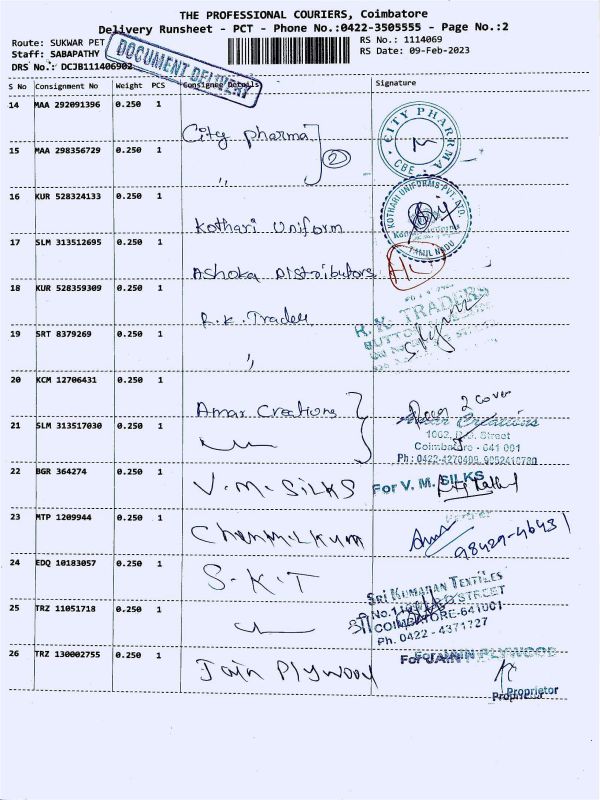 THE PROFESSIONAL COURIERS, Coimbatore
Delivery Runsheet - PCT - Phone No.:0422-3505555 - Page No.:2
Route: SUKWAR PET
Staff: SABAPATHY
DRS No.: DCJB111406902
DOCUMENT DELIVERY
RS No.: 1114069
RS Date: 09-Feb-2023
S No Consignment No Weight PCS Consignee Details Signature
14 MAA 292091396 0.250 1
City pharma
2
CITY PHARRMA
CBE
15 MAA 298356729 0.250 1
,,
16 KUR 528324133 0.250 1
Kothari Uniform
KOTHARI UNIFORMS PVT. LTD.
TAMIL NADU
17 SLM 313512695 0.250 1
Ashoka Distributors
18 KUR 528359309 0.250 1
R.K. Trades
R.K. TRADERS
BUTTON
19 SRT 8379269 0.250 1
,,
20 KCM 12706431 0.250 1
Amar Creations
2 cover
Amar Creations
21 SLM 313517030 0.250 1
Street
Coimbatore - 641 001
22 BGR 364274 0.250 1
V.M. SILKS
For V. M. SILKS
23 MTP 1209944 0.250 1
98429-46431
24 EDQ 10183057 0.250 1
S.K.T
SRI KUMARAN TEXTILES
STREET
COIMBATORE-641001
Ph. 0422 - 4371727
25 TRZ 11051718 0.250 1
26 TRZ 130002755 0.250 1
Jain Plywood
For JAIN PLYWOOD
Proprietor